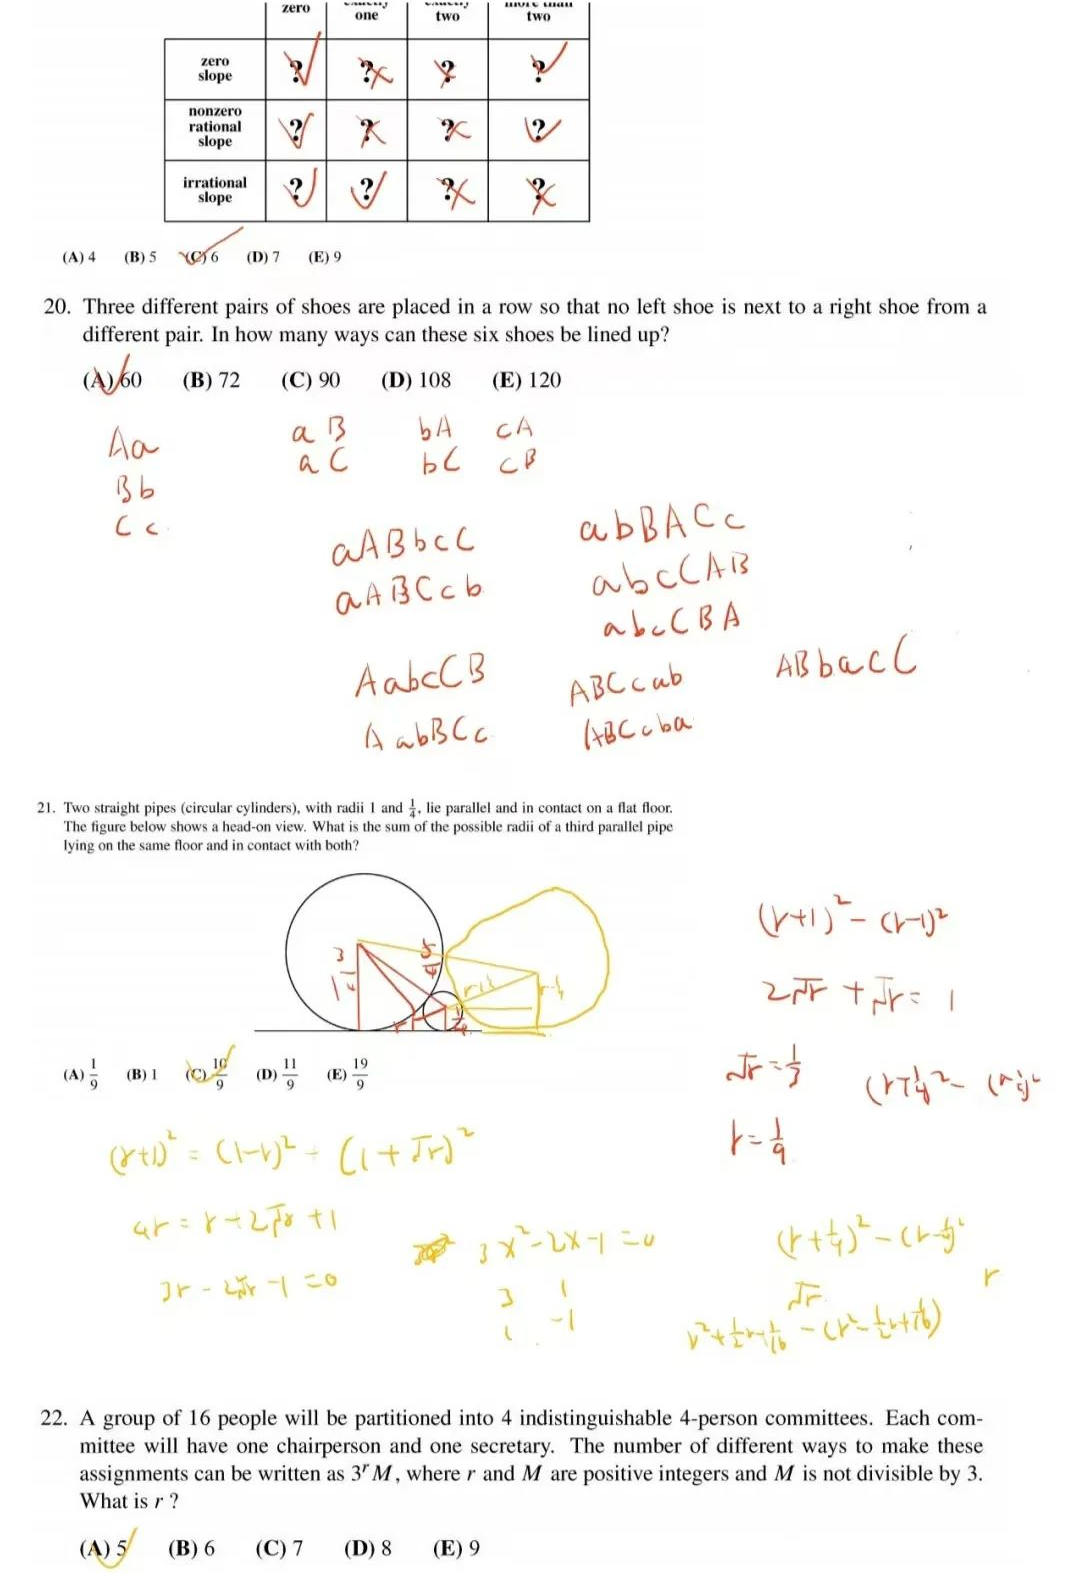 zero
one
two
two
zero
slope
? ? ? ?
nonzero
rational
slope
? ? ? ?
irrational
slope
? ? ? ?
(A) 4 (B) 5 (C) 6 (D) 7 (E) 9
20. Three different pairs of shoes are placed in a row so that no left shoe is next to a right shoe from a
different pair. In how many ways can these six shoes be lined up?
(A) 60 (B) 72 (C) 90 (D) 108 (E) 120
Aa
Bb
Cc
aB bA cA
aC bC cB
aABbcC
aABCcb
abBACc
abcCAB
abcCBA
AabcCB
AabBCc
ABCcab
ABCcba
ABbacC
21. Two straight pipes (circular cylinders), with radii 1 and 1/4, lie parallel and in contact on a flat floor.
The figure below shows a head-on view. What is the sum of the possible radii of a third parallel pipe
lying on the same floor and in contact with both?
(A) 1/9 (B) 1 (C) 10/9 (D) 11/9 (E) 19/9
(r+1)² - (r-1)²
2√r + √r = 1
√r = 1/3
r = 1/9
(r+1)² = (1-r)² + (1+√r)²
4r = r+2√r+1
3r - 2√r - 1 = 0
3x²-2x-1=0
3 1
1 -1
(r+1/4)² - (r-1/4)²
√r
r
r²+1/2r+1/16 - (r²-1/2r+1/16)
22. A group of 16 people will be partitioned into 4 indistinguishable 4-person committees. Each com-
mittee will have one chairperson and one secretary. The number of different ways to make these
assignments can be written as 3^r M, where r and M are positive integers and M is not divisible by 3.
What is r ?
(A) 5 (B) 6 (C) 7 (D) 8 (E) 9